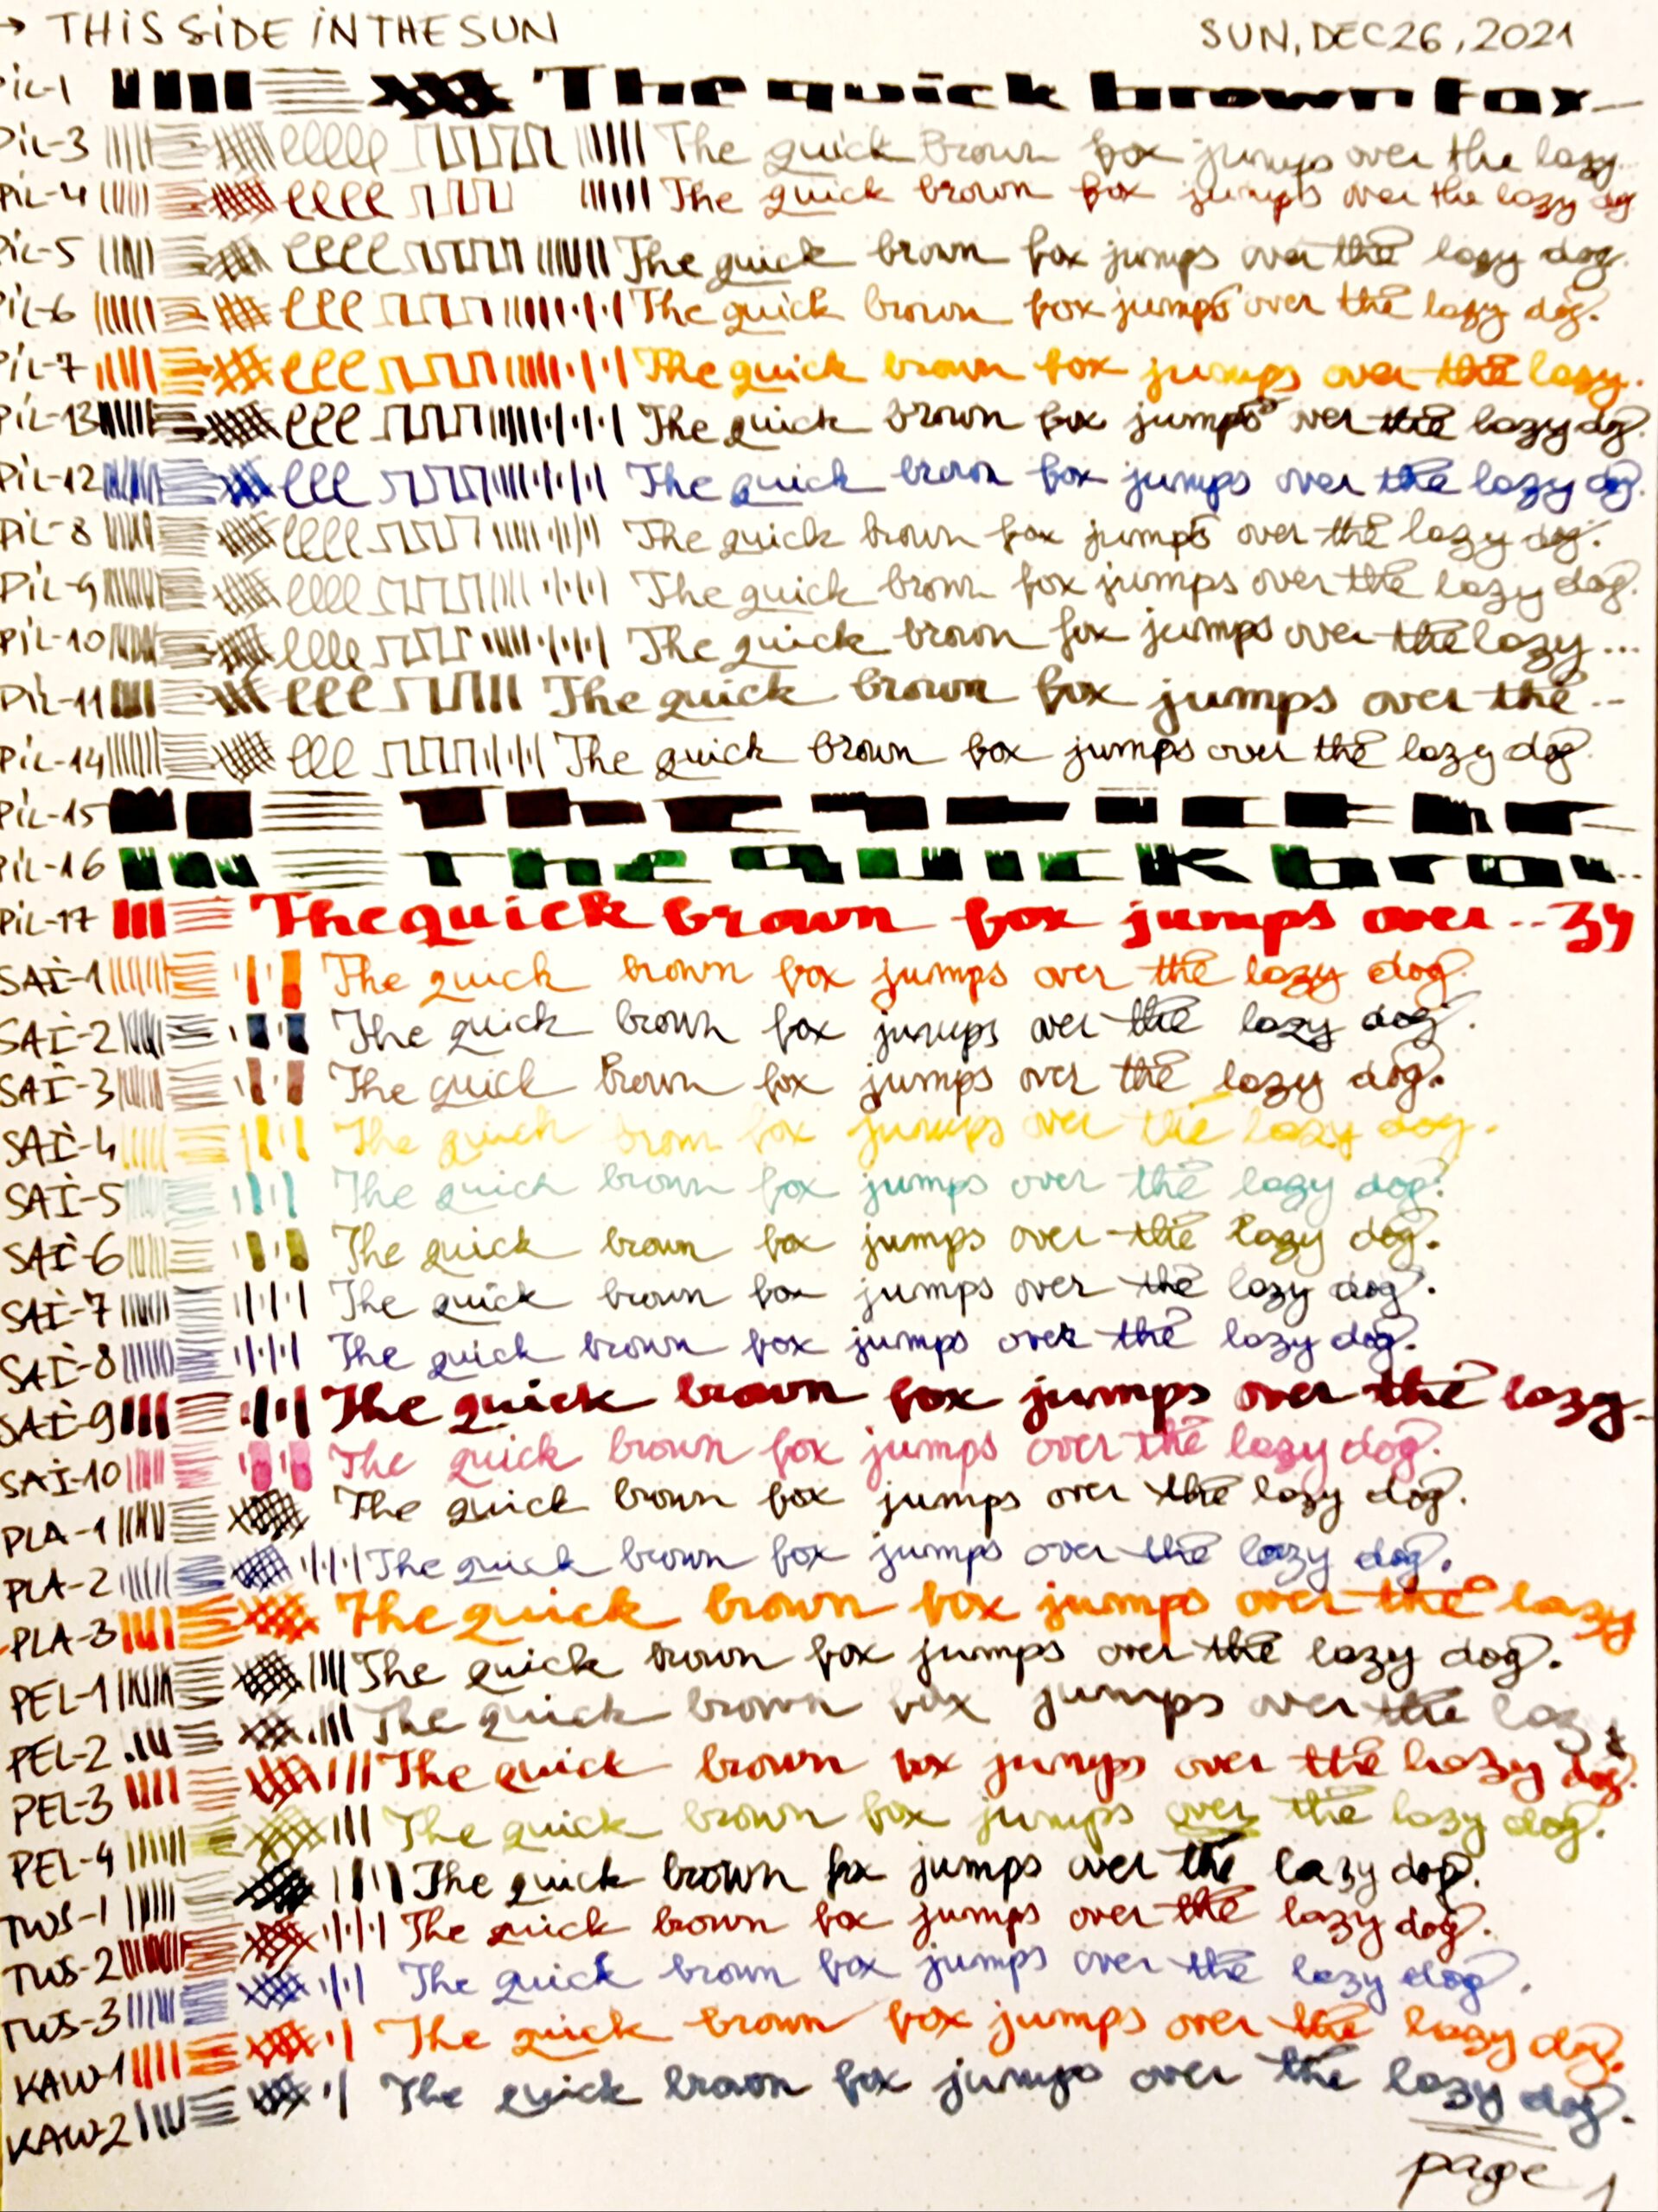 → THIS SIDE IN THE SUN SUN, DEC 26, 2021
PIL-1 The quick brown fox
PIL-3 The quick Brown fox jumps over the lazy
PIL-4 The quick brown fox jumps over the lazy dog
PIL-5 The quick brown fox jumps over the lazy dog.
PIL-6 The quick brown fox jumps over the lazy dog.
PIL-7 The quick brown fox jumps over the lazy.
PIL-13 The quick brown fox jumps over the lazy dog.
PIL-12 The quick brown fox jumps over the lazy dog.
PIL-8 The quick brown fox jumps over the lazy dog.
PIL-9 The quick brown fox jumps over the lazy dog.
PIL-10 The quick brown fox jumps over the lazy...
PIL-11 The quick brown fox jumps over the --
PIL-14 The quick brown fox jumps over the lazy dog
PIL-15 The quick br
PIL-16 The quick brow..
PIL-17 The quick brown fox jumps over...zy
SAI-1 The quick brown fox jumps over the lazy dog.
SAI-2 The quick brown fox jumps over the lazy dog.
SAI-3 The quick Brown fox jumps over the lazy dog.
SAI-4 The quick brown fox jumps over the lazy dog.
SAI-5 The quick brown fox jumps over the lazy dog.
SAI-6 The quick brown fox jumps over the lazy dog.
SAI-7 The quick brown fox jumps over the lazy dog.
SAI-8 The quick brown fox jumps over the lazy dog.
SAI-9 The quick brown fox jumps over the lazy-
SAI-10 The quick brown fox jumps over the lazy dog.
PLA-1 The quick brown fox jumps over the lazy dog.
PLA-2 The quick brown fox jumps over the lazy dog.
PLA-3 The quick brown fox jumps over the lazy
PEL-1 The quick brown fox jumps over the lazy dog.
PEL-2 The quick brown fox jumps over the lazy
PEL-3 The quick brown fox jumps over the lazy dog.
PEL-4 The quick brown fox jumps over the lazy dog.
TWS-1 The quick brown fox jumps over the lazy dog.
TWS-2 The quick brown fox jumps over the lazy dog.
TWS-3 The quick brown fox jumps over the lazy dog.
KAW-1 The quick brown fox jumps over the lazy dog.
KAW-2 The quick brown fox jumps over the lazy dog.
page 1